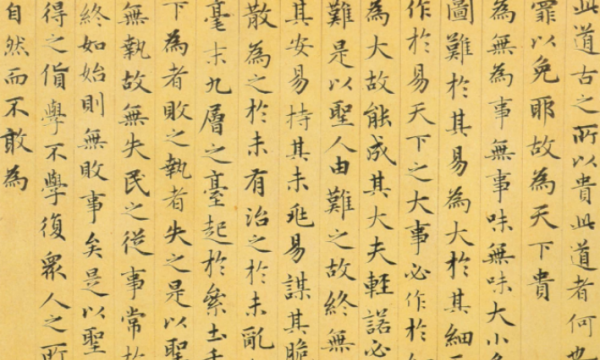 此道古之所以貴此道者何也
罪以免耶故為天下貴
為無為事無事味無味大小
圖難於其易為大於其細
作於易天下之大事必作於
為大故能成其大夫輕諾必
難是以聖人由難之故終無
其安易持其未兆易謀其脆
散為之於未有治之於未亂
毫末九層之臺起於絫土
下為者敗之執者失之是以聖
無執故無失民之從事常於
終如始則無敗事矣是以聖
得之貨學不學復眾人之所
自然而不敢為